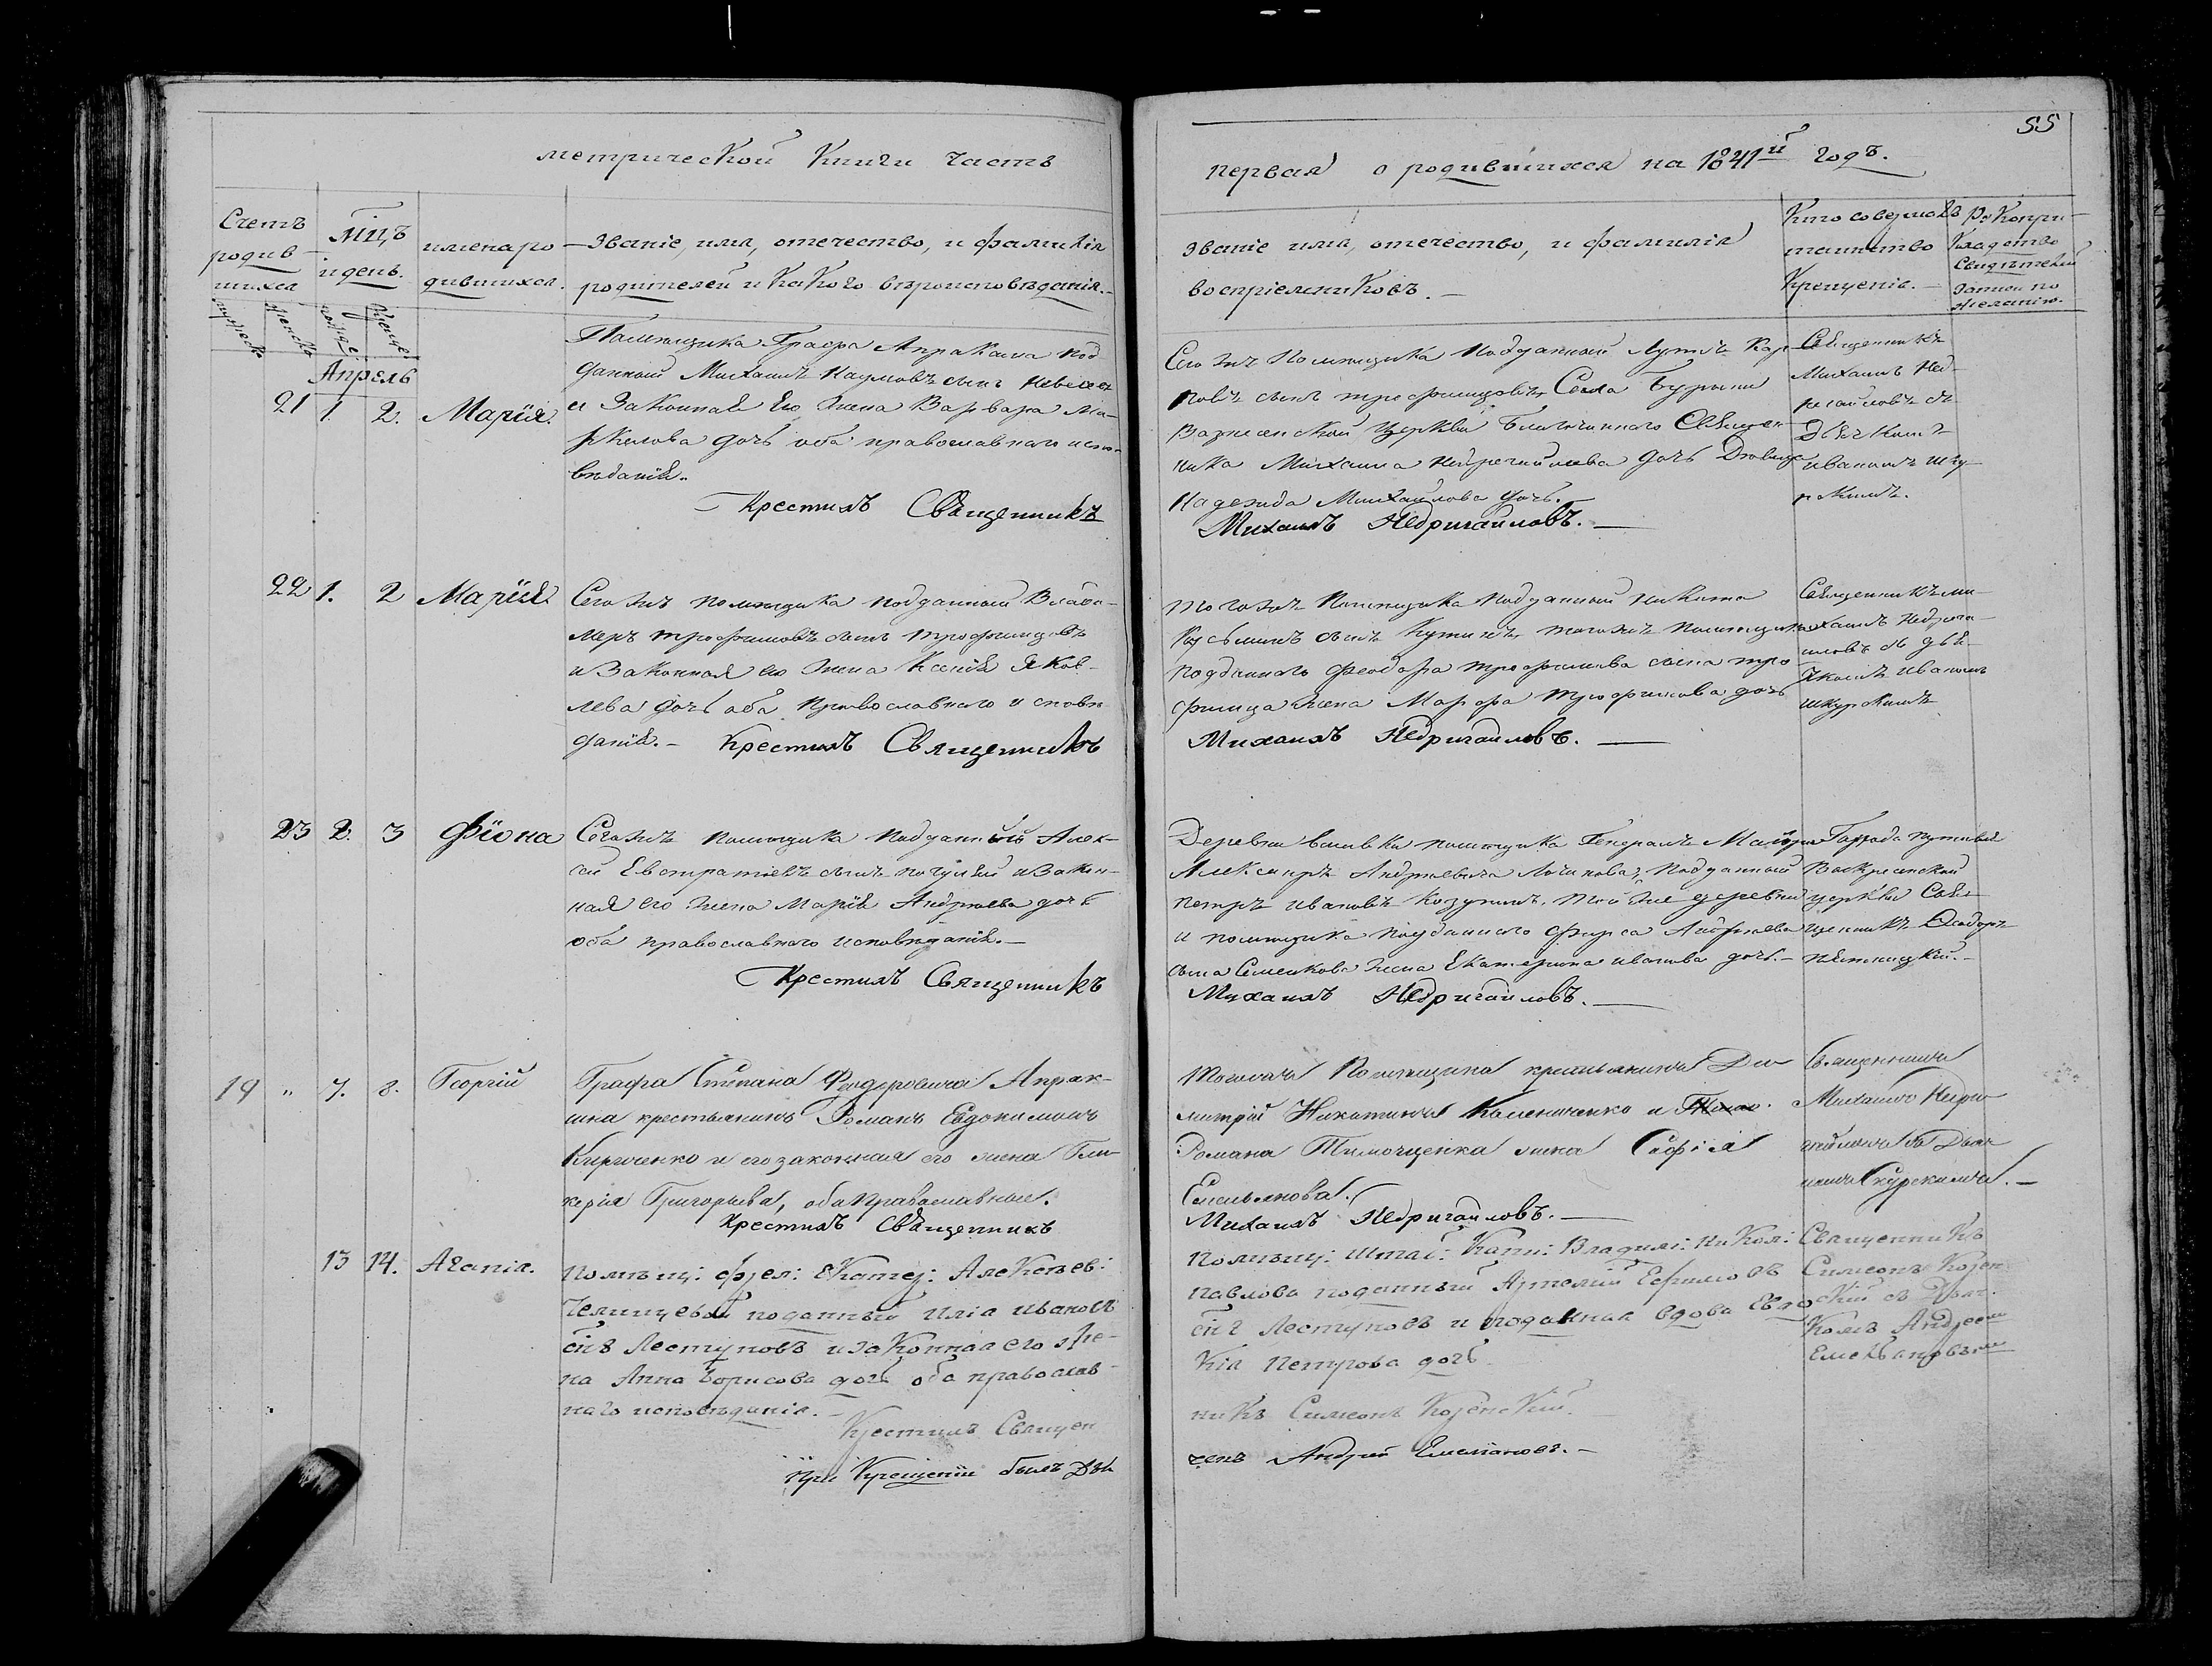 55
метрической Книги часть
первая о родившихся на 1841й годъ.
Счетъ родив-шихся
Мцъ и день.
имена ро-дившихся.
Званіе, имя, отечество, и фамилія
родителей и Какого вѣроисповѣданія.-
Званіе имя, отечество, и фамилія
воспріемниковъ.-
Кто соверша
таинство
Крещенія.-
Рукопри-
кладство
свидѣтелей
записи по
желанію.
Апрель
21 1. 2. Марія.
Помѣщика Графа Апраксина под
данный Михаилъ Наумовъ сынъ
и Законная Его Жена Варвара
дочь оба православнаго испо-
вѣданія.
Крестилъ Священникъ
Сего жъ Помѣщика Подданный Кар-
повъ сынъ Трофимцовъ, Села Бурыни
Вазнесенской Церкви Благочиннаго Священ-
ника Михаила Недригайлова дочь Девица
Надежда Михайлова дочь.-
Михаилъ Недригайловъ.-
Священникъ
Михаилъ Нед-
ригайловъ съ
Дьячкомъ
Иваномъ Шку-
ркинъ.
22 1. 2 Марія
Сего жъ помѣщика подданный Влади-
меръ Трофимовъ сынъ Трофимцовъ
и Законная его Жена Ксенія Яков-
лева дочь оба православнаго исповѣ
данія.- Крестилъ Священникъ
Тогожъ Помѣщика Подданный Никита
Кузьминъ сынъ тогожъ помѣщика
подданнаго Феодора Трофимова сына Тро
фимца жена Марфа Трофимова дочь
Михаилъ Недригайловъ.-
Священникъ Ми-
хаилъ Недрига-
иловъ съ Дья
чкомъ Иваномъ
Шкуркинъ
23 2. 3 Фіона
Сегожъ помѣщика подданный Алек-
сѣй Евстратіевъ сынъ и Закон-
ная его Жена Марія Андреева дочь
оба православнаго исповѣданія.-
Крестилъ Священникъ
Деревни помѣщика Генералъ Маіора
Александръ Андреевича Подданный
Петръ Ивановъ Той же деревни
и помѣщика подданнаго Фирса Андреева
сына Семенкова жена Екатерина Иванова дочь.-
Михаилъ Недригайловъ.-
Города Путивля
Воскресенской
церкви Свя-
щенникъ Феодоръ
Пятницкій.-
19 „ 7. 8. Георгій
Графа Степана Феодоровича Апрак-
сина крестьянинъ Романъ Евдокимовъ
Кириченко и его законная его жена Гли-
керія Григорьева, оба православные.
Крестилъ Священникъ
Тогожъ Помѣщика крестьянинъ Ди-
митрій Никитинъ Калениченко и
Романа Тимощенка жена Софія
Емельянова.
Михаилъ Недригайловъ.-
Священникъ
Михаилъ Недри-
гайловъ съ Дьяч
комъ Скуркинымъ.-
13 14. Агапія.
Помѣщ: фрел: Екатер: Алексѣев:
Челищевой поданный Иліа Ивановъ
снъ Лестуновъ и законная его же-
на Анна Борисова дочь оба православ-
наго исповѣданія.-
Крестилъ Священ
При Крещеніи былъ Дья
Помѣщ: Штаб: Капи: Владим: Никол:
Павлова поданный Артемій Ефимовъ
снъ Лестуновъ и поданная вдова Евдо
кія Петрова дочь
никъ Симеонъ Козенскій.
чекъ Андрей Емеліановъ.-
Священникъ
Симеонъ Козен
скій съ Дьяч.
комъ Андреем
Емельяновымъ